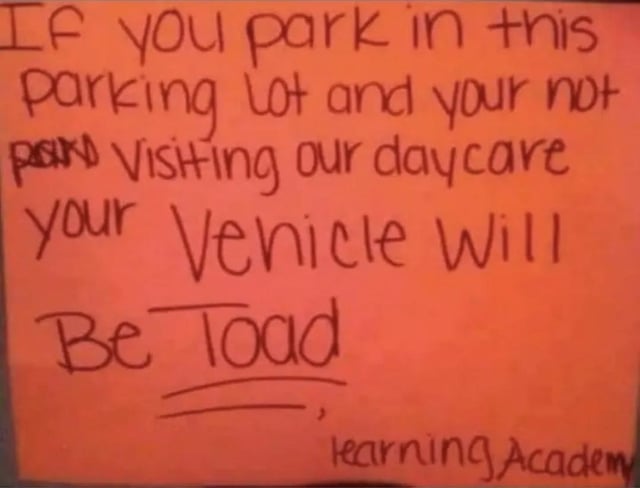 If you park in this
parking lot and your not
visiting our daycare
your Vehicle Will
Be Toad
learning Academy